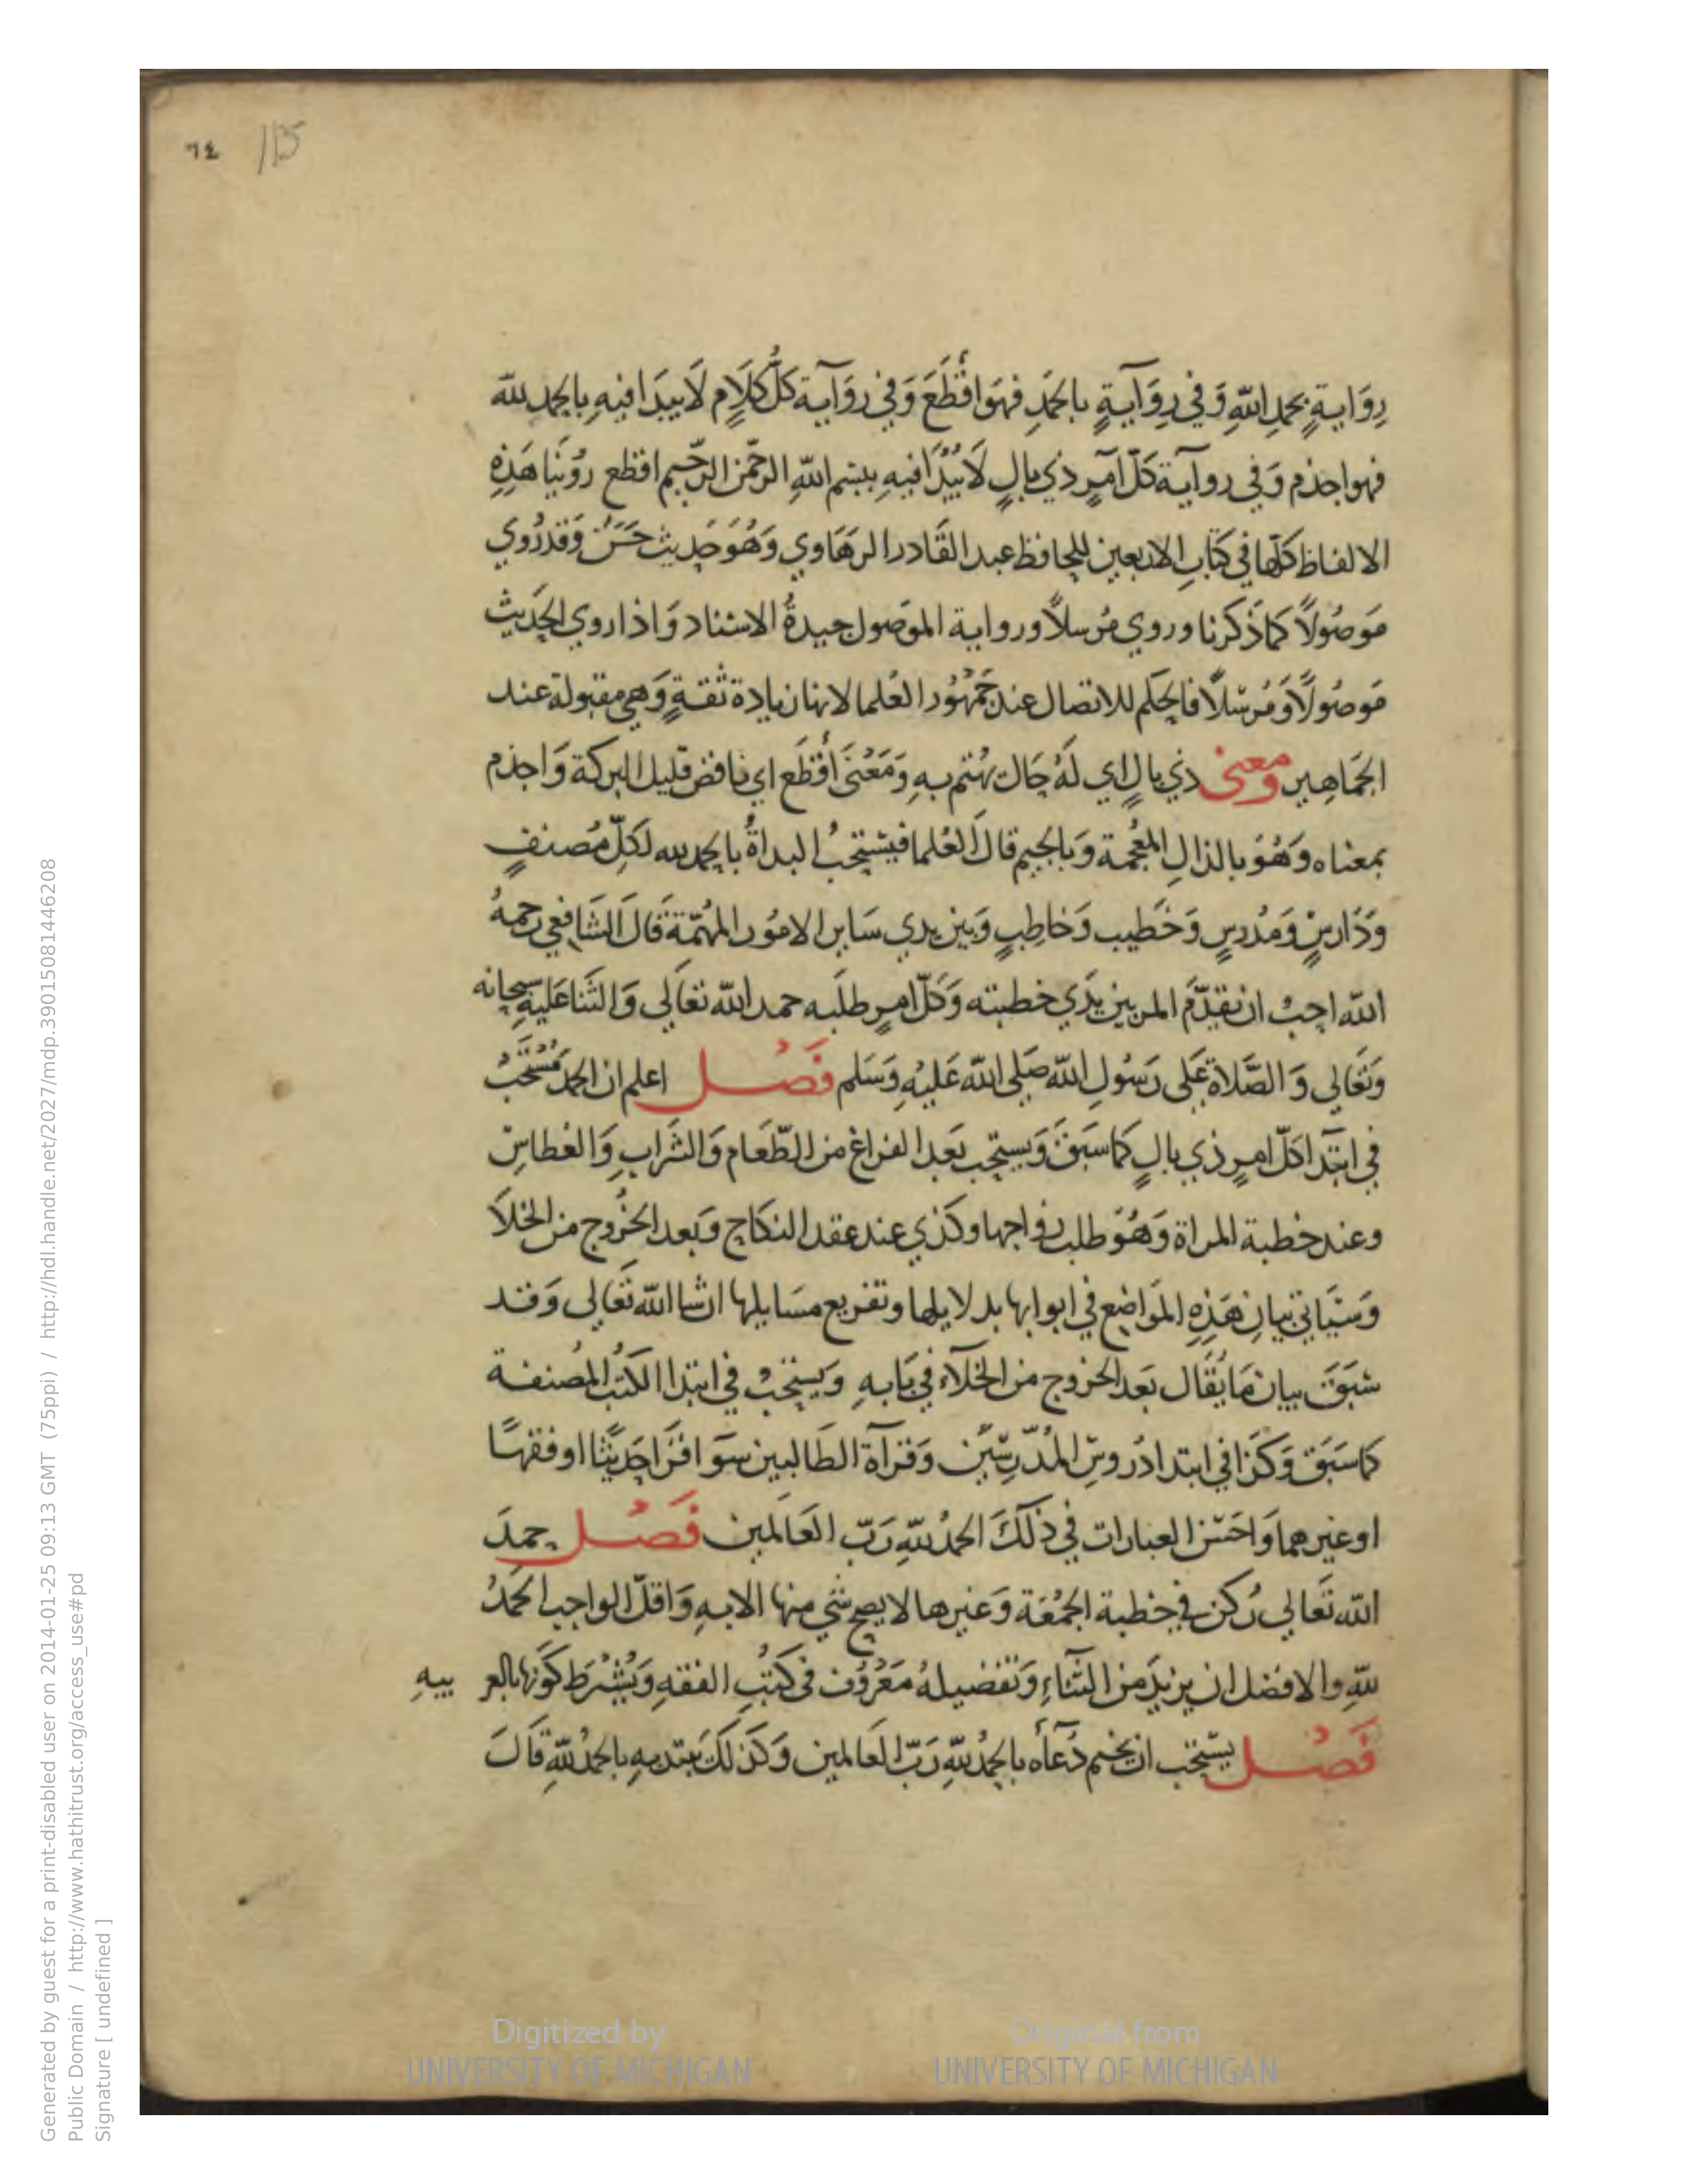 ٦٤ 115
رِوَايةٍ بحمدِ اللّهِ وَفي رِوَآيةٍ بالحَمَدِ فهوَاقْطَعَ وَفي روَآية كلُّ كلَامٍ لَا يبدَا فيهِ بالحمد للّه
فهواجذم وَفي روآية كلّ امرٍ ذي بالٍ لَا يُبْدَا فيهِ ببسْم اللّهِ الرحّمن الرحّيم اقطع روُينَا هَذِهِ
الالفاظ كلّها في كتَابِ الاربعين للحافظ عبد القَادر الرهَاوي وَهُوَ حَديث حسَن وَقدرُوي
مَوصُولاً كماذكرنا وروي مُرسلاً ورواية الموَصول جيدةُ الاسناد وَاذا روي الحَديث
مَوصُولاً وَمُرسلاً فالحكم للاتصال عند جَمْهُور العُلما لانها زيادة ثقةٍ وَهي مقبولة عند
الجمَاهِير ومعنى ذي بالٍ اي لَهُ حَال يُهْتم بهِ وَمَعْنىَ أقْطَع اي ناقص قليل البركة وَاجذم
بمعناه وَهُوَ بالذالِ المعُجمة وَبالجيم قالَ العُلما فيسْتحَبُ البداةُ بالحمد لله لكلّ مُصَنفٍ
وَدَارسٍ وَمُدرسٍ وَخَطيب وَخاطِبٍ وَبين يدي سَاير الامُور المهُمّة قَالَ الشَافعي رَحمهُ
اللّه احِبُ ان يقدِّمَ المربين يَدَي خطبته وَكلّ امرٍ طلَبه حمد اللّه تعَالي وَالثَنا عَليهِ سبحانه
وَتعَالي وَالصَّلاة عَلى رَسُول اللّه صَلى اللّه عَليْهِ وَسَلم فَصْل اعلم ان الحمد مُسْتحَبُ
في ابتدا كلّ امرٍ ذي بالٍ كما سَبَقَ وَيستحِب بَعد الفراغ من الطّعَام وَالشرَابِ وَالعُطاسِ
وعند خطبة المراة وَهُوَ طلب زواجها وكذي عند عقد النكاح وَبَعد الخرُوج من الخلاَ
وَسَيَاتي بيَان هَذِهِ الموَاضع في ابوابها بدلايلها وتفريع مسَايلها انشا اللّه تعَالى وَقد
سَبَقَ بيان مَا يُقَال بَعد الخروج من الخلآء في بَابهِ وَيُستحبُ في ابتدا الكتُب المُصنفة
كما سَبَق وَكذَا في ابتدا دُروسِ المُدّرِسيَن وَقرآة الطَالبين سَوا قرَا حَديثًا اوفقهًا
اوغيرهما وَاحَسَن العبارات في ذلكَ الحمدُ للّهِ رَبّ العَالَمين فَصْل حمدَ
اللّه تعَالي رُكن في خطبة الجُمُعَة وَغيرها لا يصح شي منها الا به وَاقلّ الواجب الحَمدُ
للّهِ والافضل ان يزيدَ من الثنَاءِ وَتفْضيلهُ مَعْرُوف في كتُبِ الفقهِ وَيُشْتَرَط كوَنها بالعر بيهِ
فَصْل يستحِب ان يختم دُعَآه بالحمدُ للّهِ رَبّ العَالمين وَكذلكَ يَبتديهِ بالحمدُ للّهِ قَالَ
Generated by guest for a print-disabled user on 2014-01-25 09:13 GMT (75ppi) / http://hdl.handle.net/2027/mdp.39015081446208
Public Domain / http://www.hathitrust.org/access_use#pd
Signature [ undefined ]
Digitized by
UNIVERSITY OF MICHIGAN
Original from
UNIVERSITY OF MICHIGAN